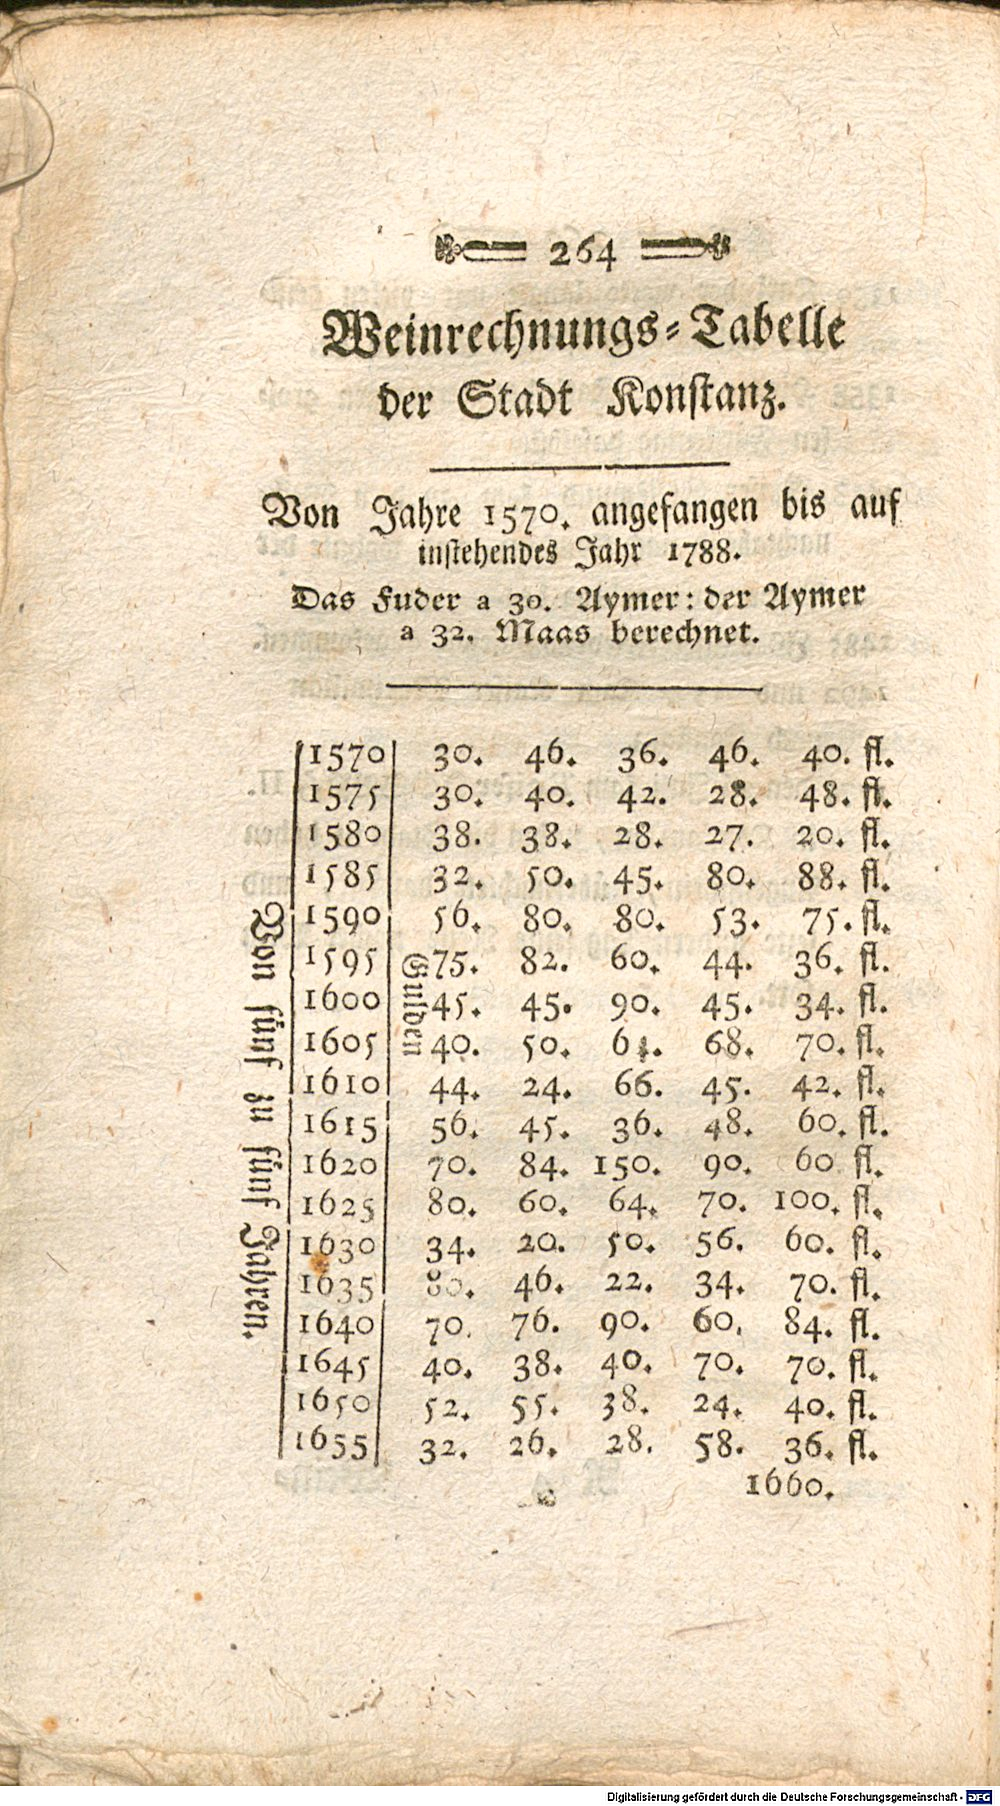 264
Weinrechnungs-Tabelle
der Stadt Konstanz.
Von Jahre 1570. angefangen bis auf
instehendes Jahr 1788.
Das Fuder a 30. Aymer: der Aymer
a 32. Maas berechnet.
Von fünf zu fünf Jahren.
Gulden
1570 30. 46. 36. 46. 40. fl.
1575 30. 40. 42. 28. 48. fl.
1580 38. 38. 28. 27. 20. fl.
1585 32. 50. 45. 80. 88. fl.
1590 56. 80. 80. 53. 75. fl.
1595 75. 82. 60. 44. 36. fl.
1600 45. 45. 90. 45. 34. fl.
1605 40. 50. 68. 70. fl.
1610 44. 24. 66. 45. 42. fl.
1615 56. 45. 36. 48. 60. fl.
1620 70. 84. 150. 90. 60 fl.
1625 80. 60. 64. 70. 100. fl.
1630 34. 20. 50. 56. 60. fl.
1635 80. 46. 22. 34. 70. fl.
1640 70. 76. 90. 60. 84. fl.
1645 40. 38. 40. 70. 70. fl.
1650 52. 55. 38. 24. 40. fl.
1655 32. 26. 28. 58. 36. fl.
1660.
Digitalisierung gefördert durch die Deutsche Forschungsgemeinschaft - DFG